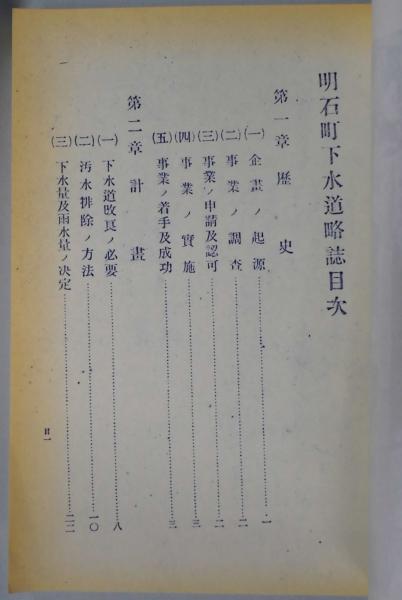 明石町下水道略誌目次
第一章 歷史
(一) 企畫ノ起源……一
(二) 事業ノ調查……二
(三) 事業ノ申請及認可……二
(四) 事業ノ實施……三
(五) 事業ノ着手及成功……三
第二章 計畫
(一) 下水道改良ノ必要……八
(二) 汚水排除ノ方法……一〇
(三) 下水量及雨水量ノ決定……一二
目一